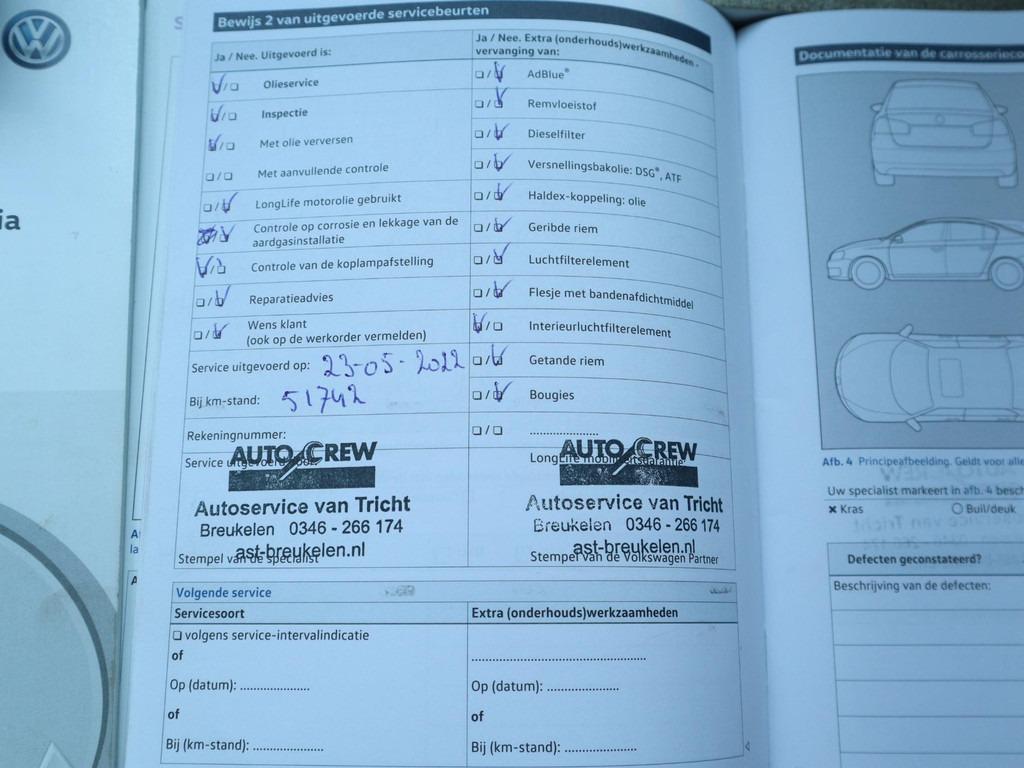 ia
Bewijs 2 van uitgevoerde servicebeurten
Ja / Nee. Uitgevoerd is:
Olieservice
Inspectie
Met olie verversen
Met aanvullende controle
LongLife motorolie gebruikt
Controle op corrosie en lekkage van de
aardgasinstallatie
Controle van de koplampafstelling
Reparatieadvies
Wens klant
(ook op de werkorder vermelden)
Service uitgevoerd op: 23-05-2022
Bij km-stand: 51742
Rekeningnummer:
Service uitgevoerd door:
AUTO CREW
Autoservice van Tricht
Breukelen 0346 - 266 174
ast-breukelen.nl
Stempel van de specialist
Ja / Nee. Extra (onderhouds)werkzaamheden -
vervanging van:
AdBlue®
Remvloeistof
Dieselfilter
Versnellingsbakolie: DSG®, ATF
Haldex-koppeling: olie
Geribde riem
Luchtfilterelement
Flesje met bandenafdichtmiddel
Interieurluchtfilterelement
Getande riem
Bougies
....................
LongLife mobiliteitsgarantie
AUTO CREW
Autoservice van Tricht
Breukelen 0346 - 266 174
ast-breukelen.nl
Stempel van de Volkswagen Partner
Volgende service
Servicesoort
volgens service-intervalindicatie
of
Op (datum): ....................
of
Bij (km-stand): ....................
Extra (onderhouds)werkzaamheden
..................................................
Op (datum): ....................
of
Bij (km-stand): ....................
Documentatie van de carrosserieco
Afb. 4 Principeafbeelding. Geldt voor alle
Uw specialist markeert in afb. 4 besch
× Kras
Buil/deuk
Defecten geconstateerd?
Beschrijving van de defecten: